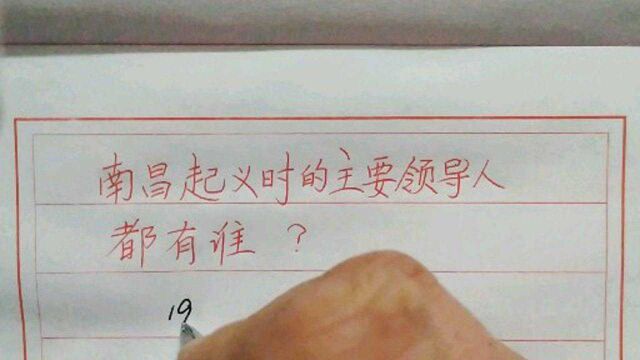 南昌起义时的主要领导人
都有谁？
19